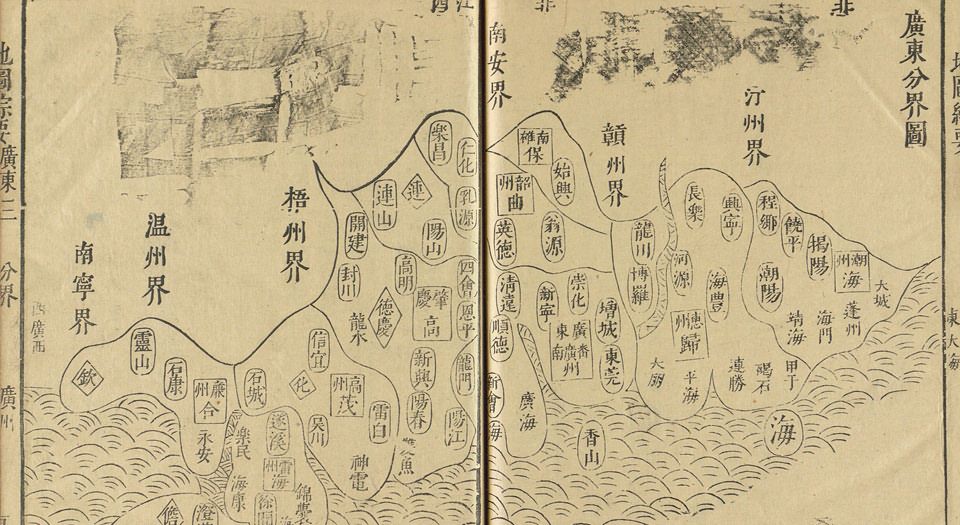 廣東分界圖
汀州界
贛州界
南安界
大城
潮州
海
揭陽
饒平
程鄉
蓬州
海門
靖海
潮陽
興寧
長樂
海豐
河源
惠州
歸
甲子
碣石
捷勝
平海
大鵬
龍川
博羅
南雄
保
始興
韶州
曲
翁源
英德
崇化
增城
東莞
新寧
廣東
番
廣州
南
清遠
順德
廣海
新會
香山
海
梧州界
温州界
南寧界
仁化
樂昌
乳源
連
連山
陽山
開建
封川
四會
恩平
高明
肇慶
高
德慶
龍水
龍門
新興
陽春
陽江
信宜
化
高州
茂
電白
吳川
神電
石城
遂溪
雷州
海
樂民
海康
錦囊
靈山
欽
石康
廉州
合
永安
廣東三
分界
廣州